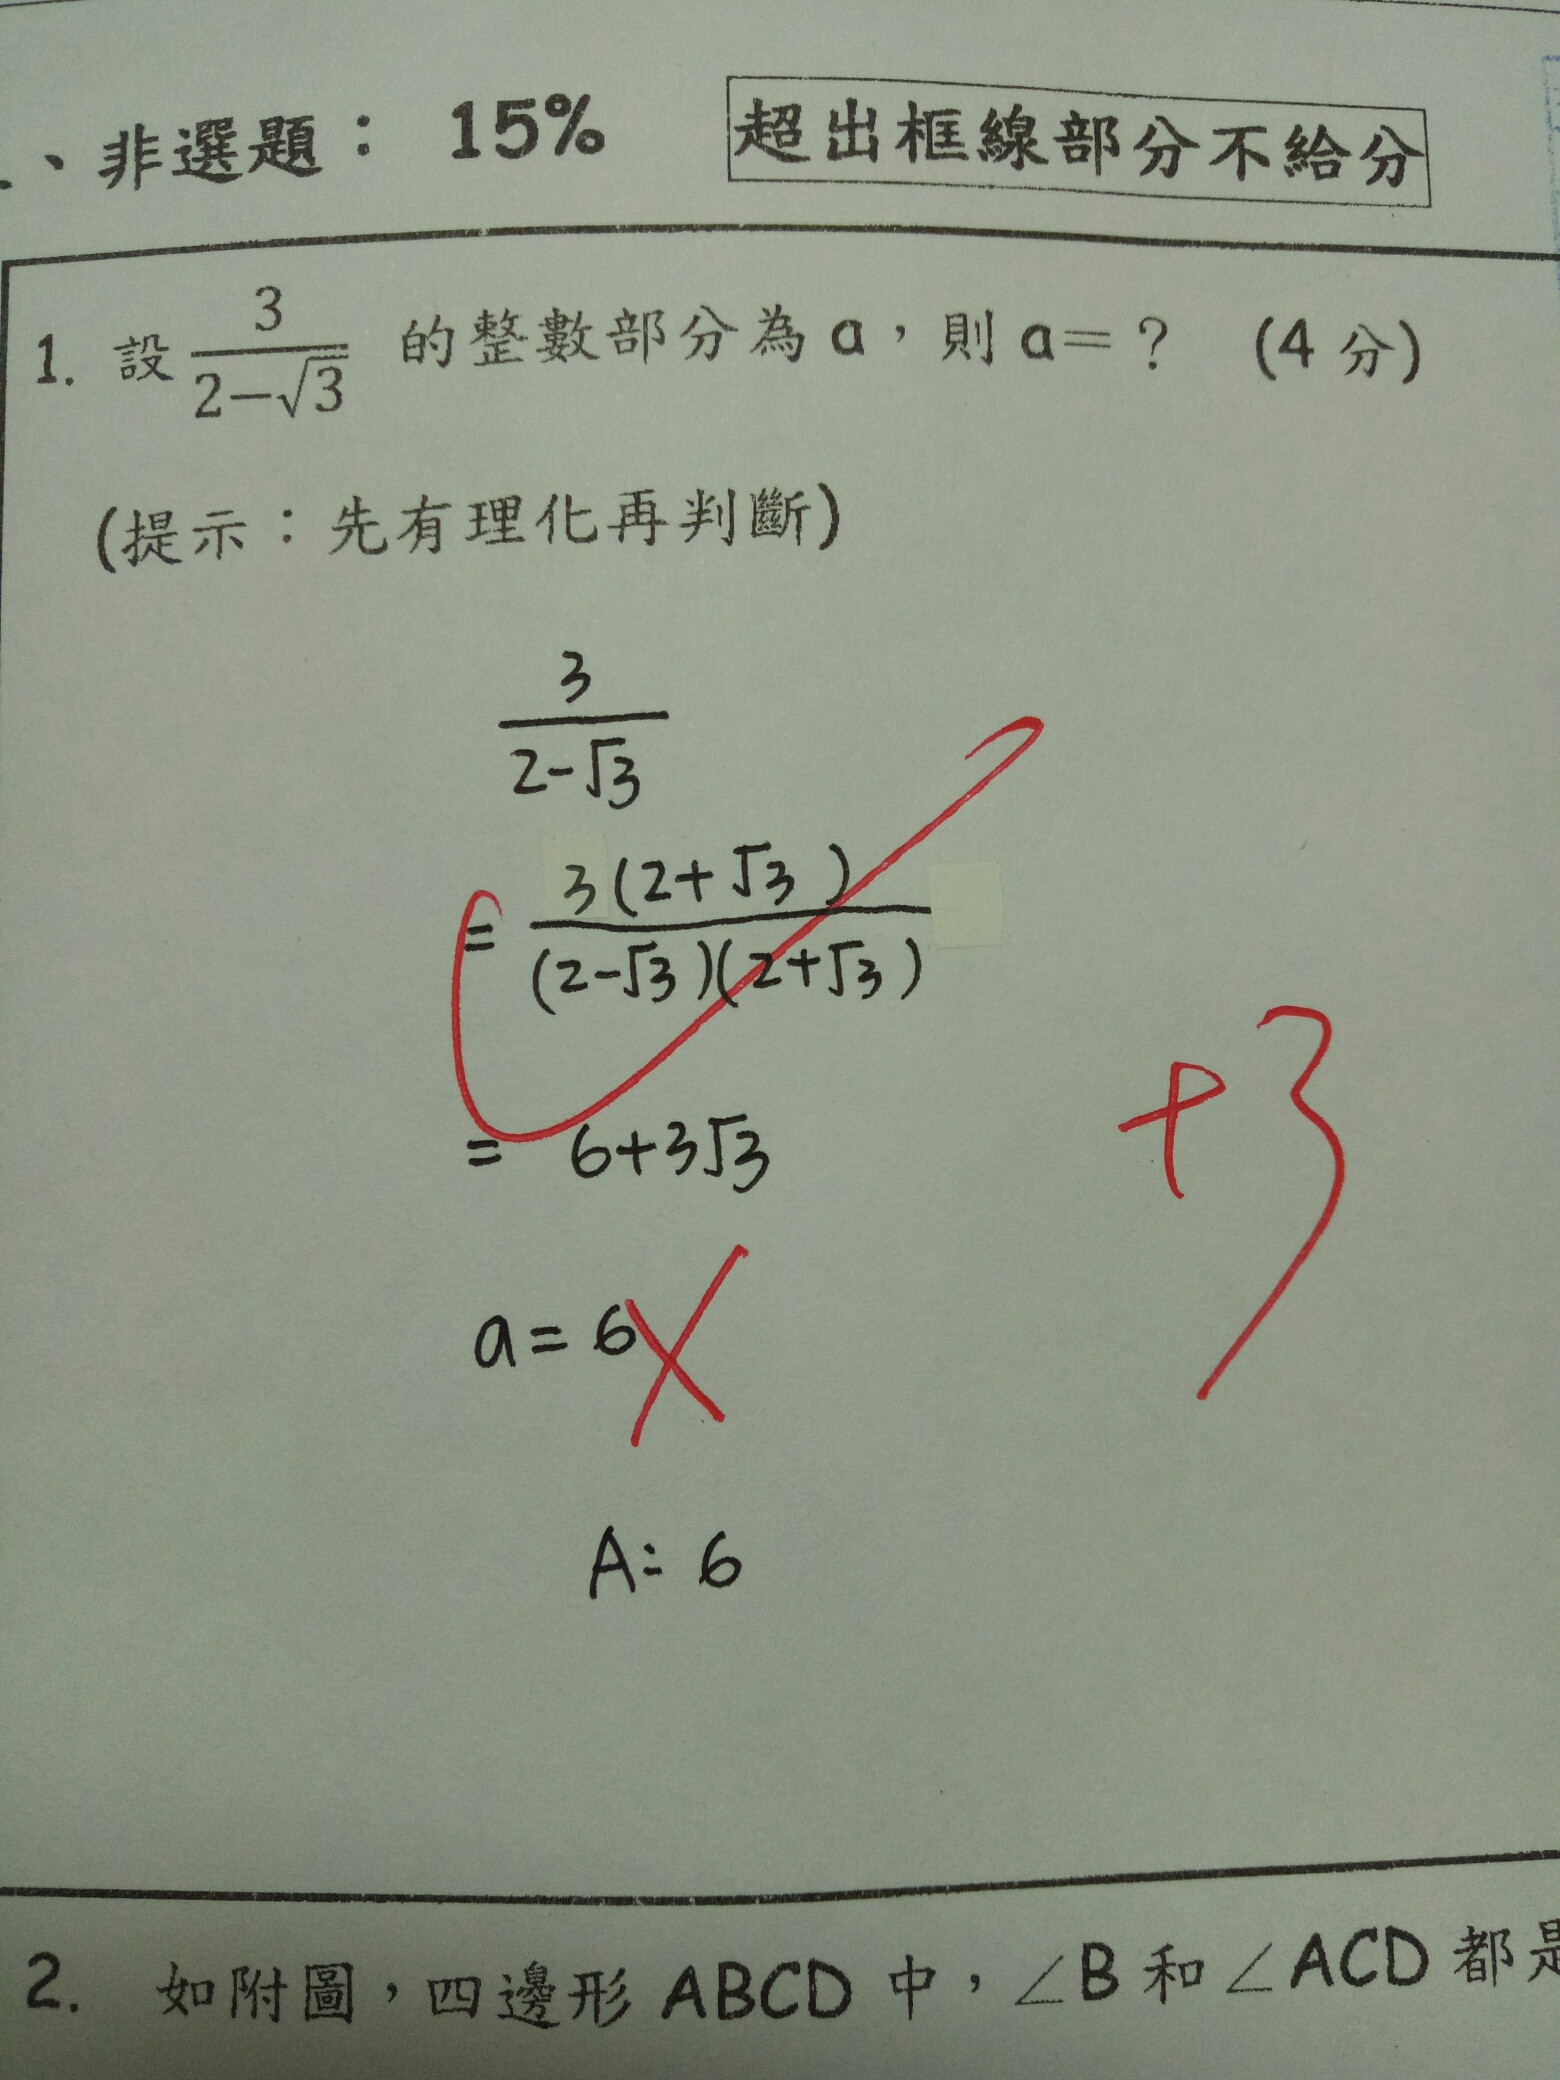 、非選題： 15% 超出框線部分不給分
1. 設 3/(2−√3) 的整數部分為 a，則 a＝？ (4 分)
(提示：先有理化再判斷)
3/(2-√3)
= 3(2+√3)/((2-√3)(2+√3))
= 6+3√3
+3
a=6
A: 6
2. 如附圖，四邊形 ABCD 中，∠B 和∠ACD 都是